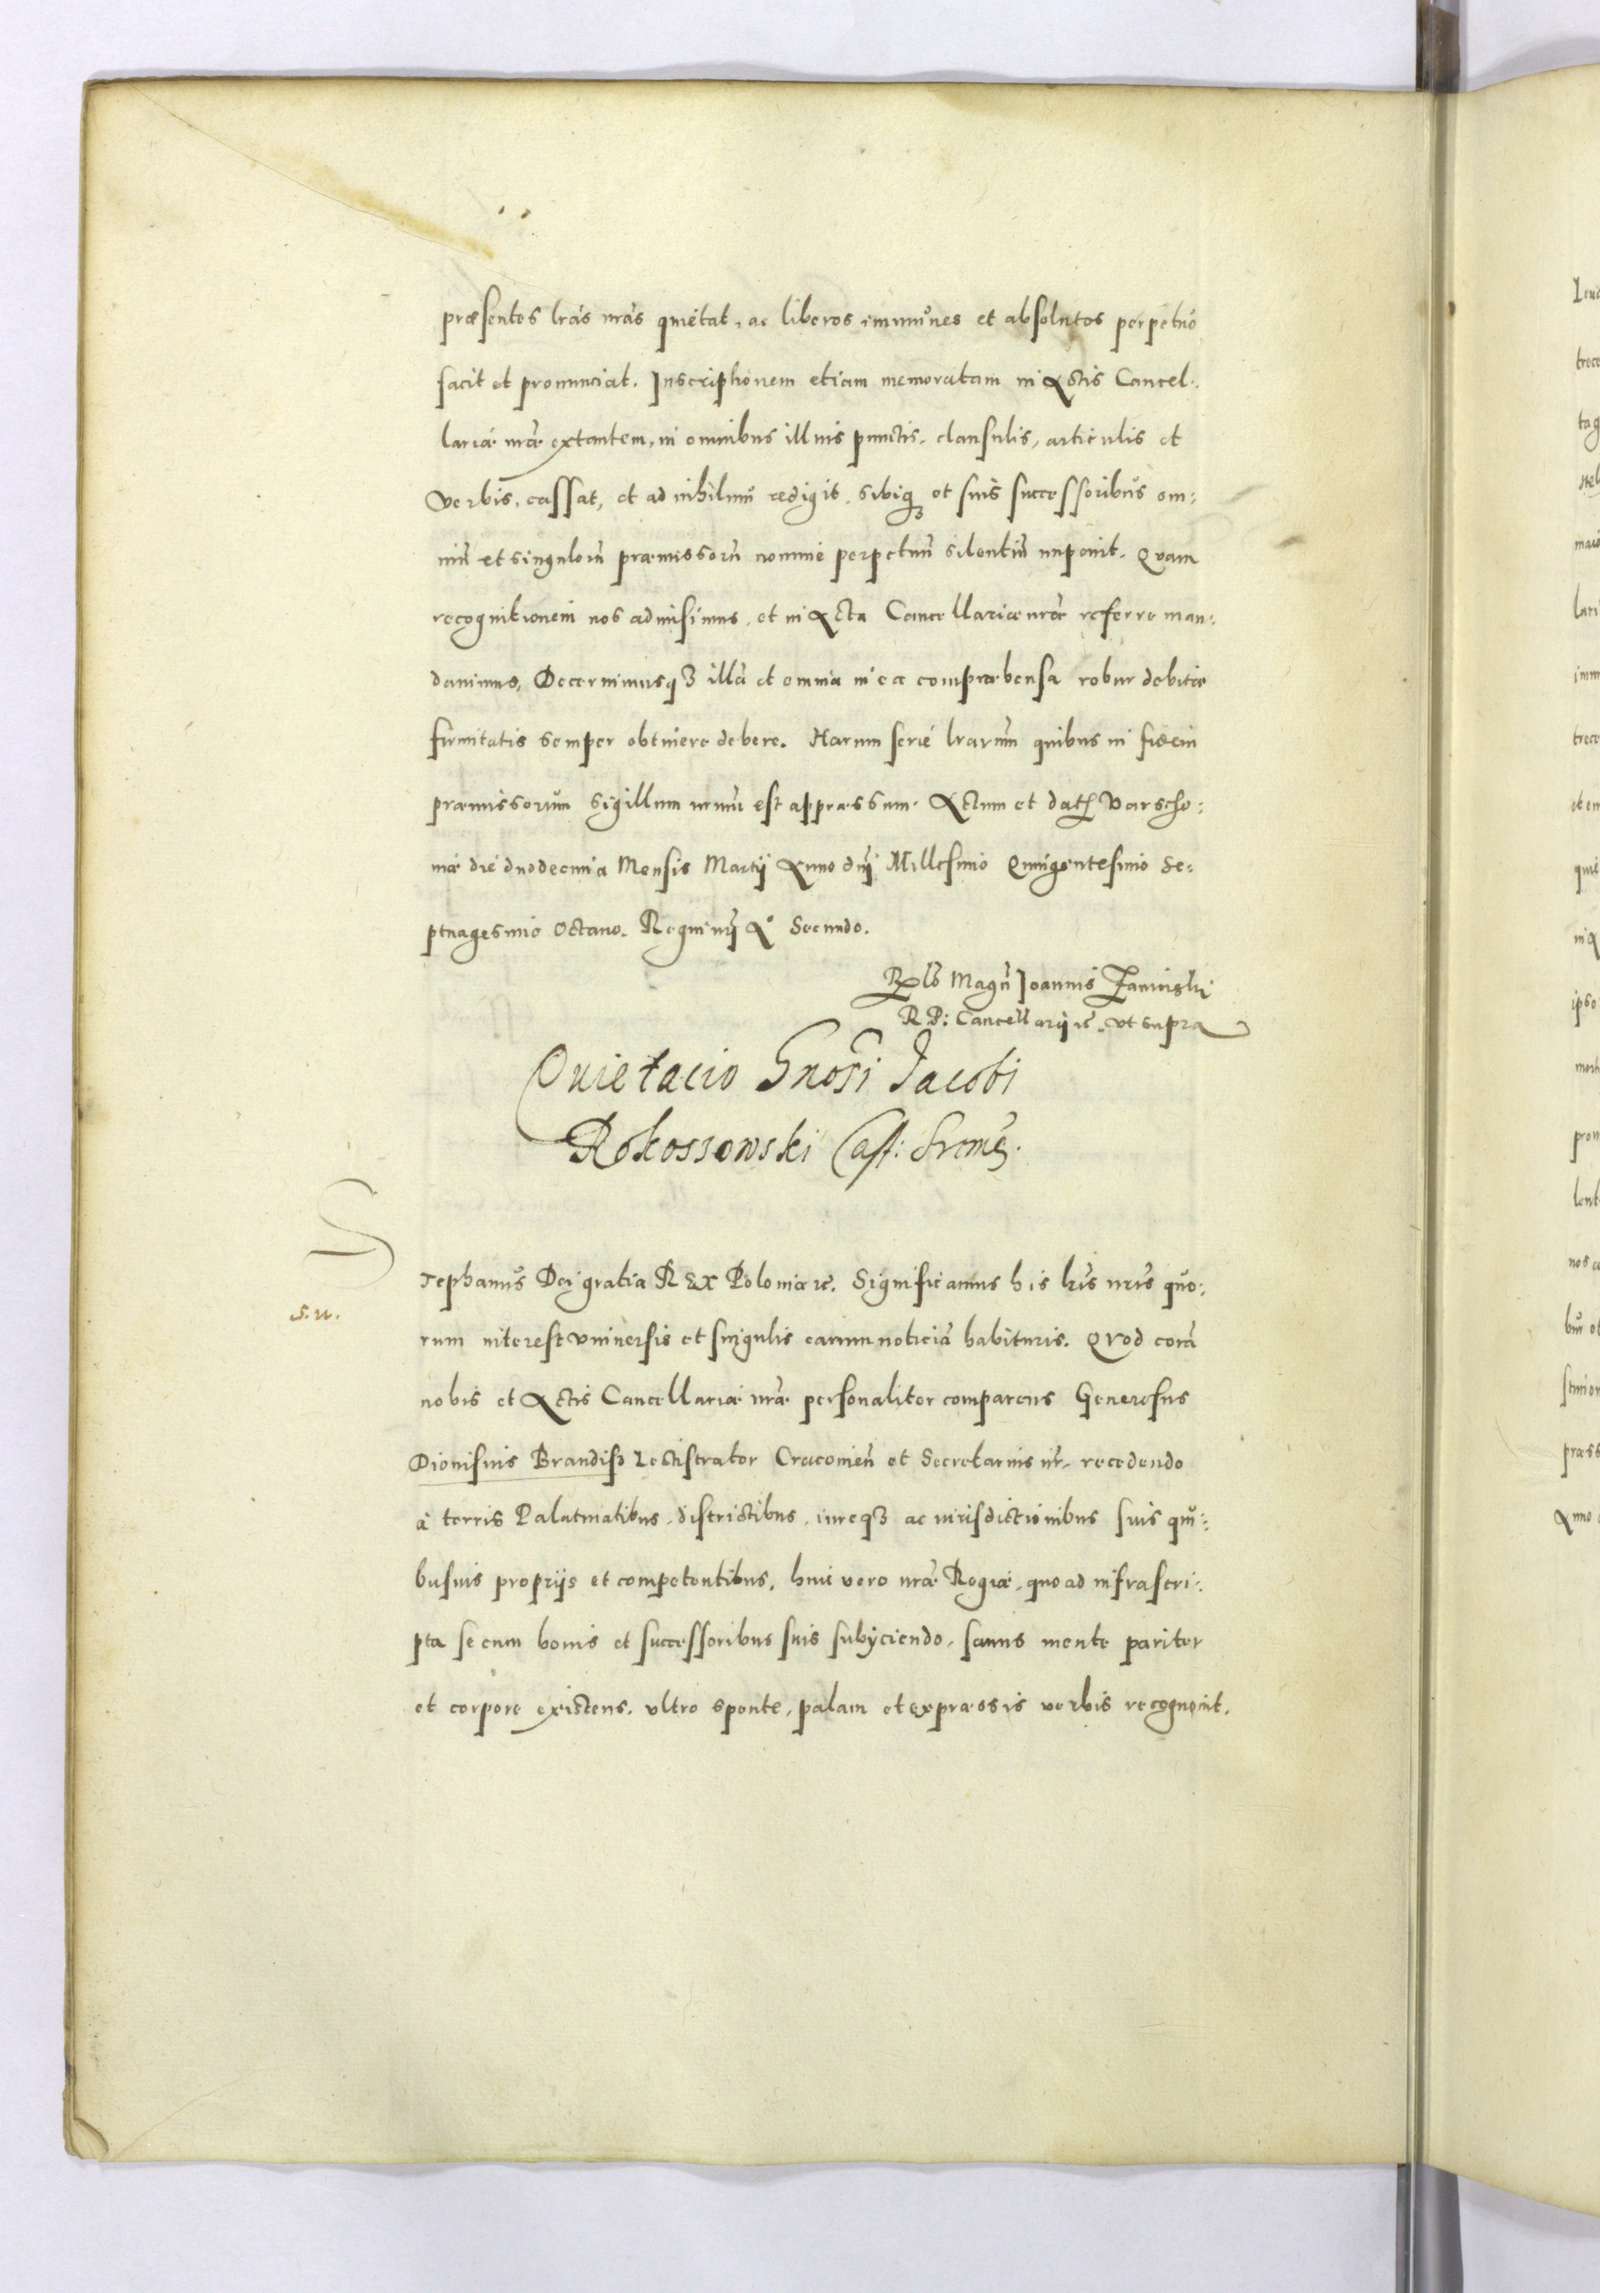 præsentes lrás nrás quietat, ac liberos, immunes et absolutos perpetuó
facit et pronunciat. Inscriptionem etiam memoratam in Actis Cancel-
lariæ nræ extantem, in omnibus illius punctis, clausulis, articulis et
verbis, cassat, et ad nihilum redigit, sibiq3 et suis successoribus om-
niũ et singulorũ præmissorũ nomine perpetuũ silentiũ imponit. Quam
recognitionem nos admisimus, et in Acta Cancellariæ nræ referre man-
davimus, Decernimusq3 illã et omnia in ea compræhensa robur debitæ
firmitatis semper obtinere debere. Harum serie lrarum quibus in fidem
præmissorum sigillum nrum est appræssum. Actum et dat Varscho-
viæ die duodecima Mensis Martij Anno dnj Millesimo Quingentesimo Se-
ptuagesimo Octavo. Regni nrj Aº Secundo.
Rlo Magci Joannis Zamiski
R P: Cancellarij rc. ut supra
Quietacio Gnosi Jacobi
Rokossowski Cast: Sremẽ.
Stephanus Dei gratia REX Poloniæ rc. Significamus his lris nris quo-
s. n.
rum interest universis et singulis earum noticiã habituris. Quod corã
nobis et Actis Cancellariæ nræ personaliter comparens Generosus
Dionisius Brandisz Lectistrator Cracovieñ et Secretarius nr, recedendo
à terris Palatinatibus, districtibus, iureq3 ac iurisdictionibus suis qui-
busvis proprijs et competentibus, huic vero nræ Regiæ, quoad infrascri-
pta se cum bonis et successoribus suis subijciendo, sanus mente pariter
et corpore existens, ultro sponte, palam et expræssis verbis recognovit,